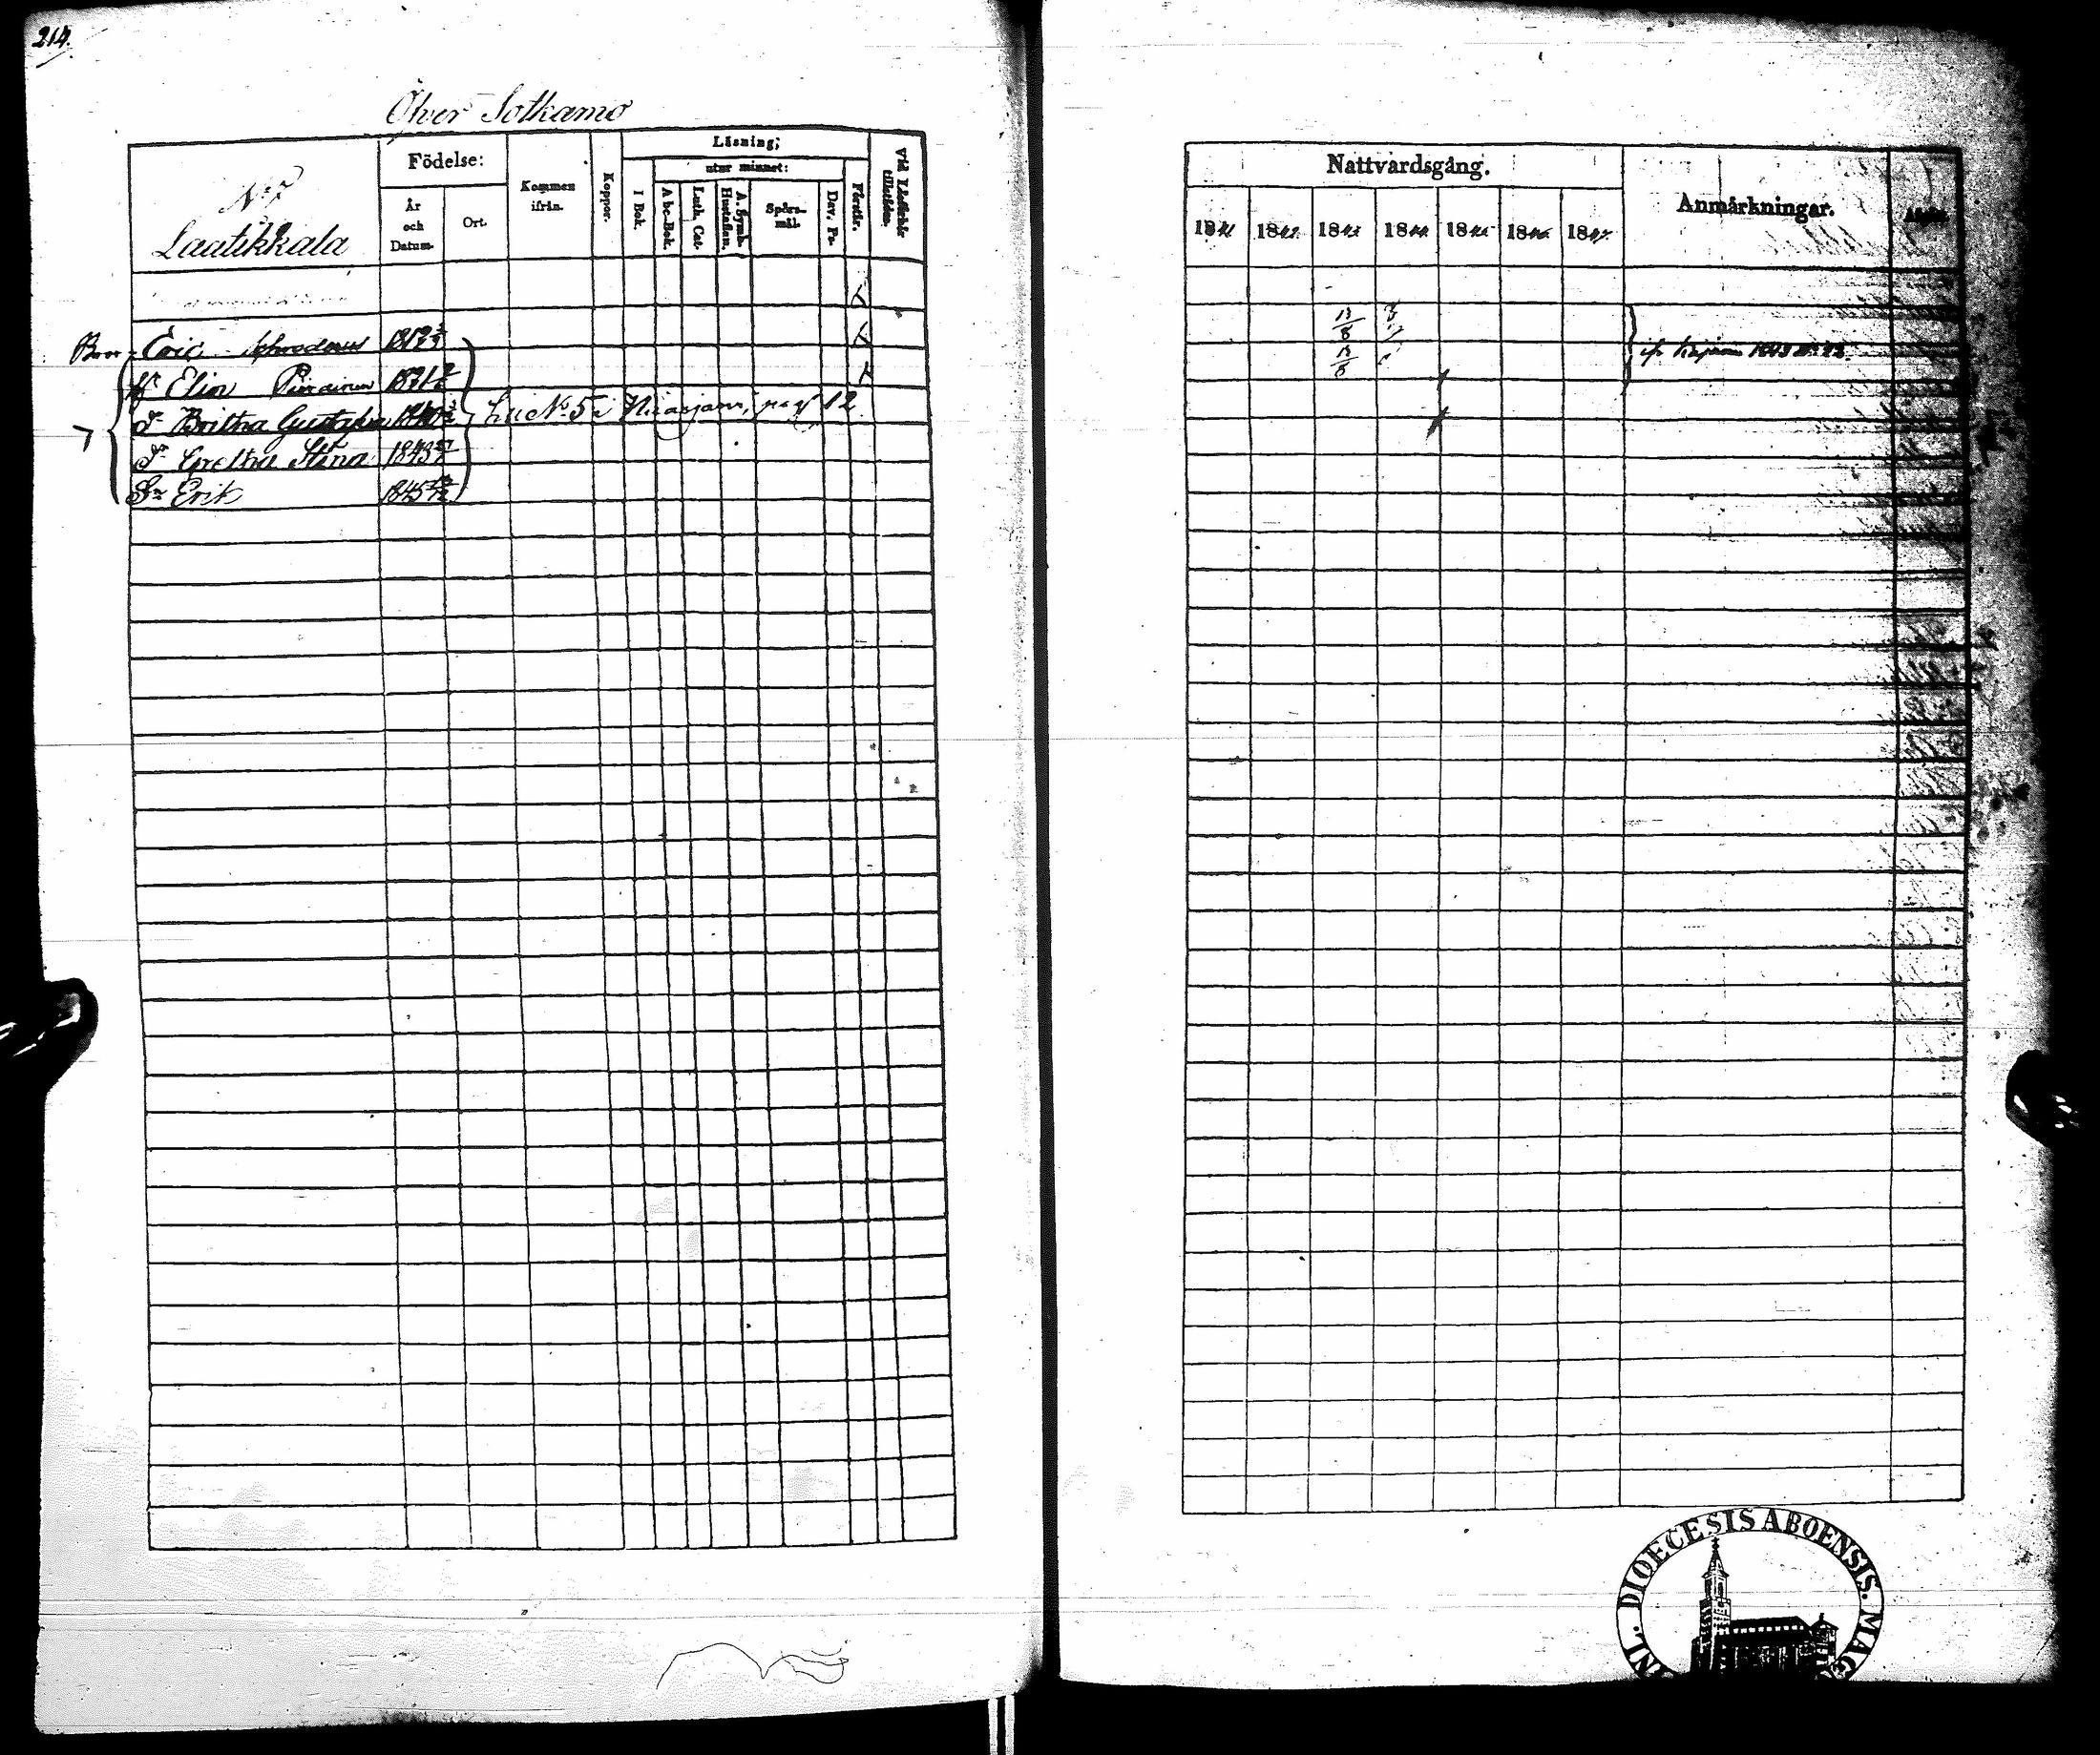 214.
Öfver Sotkamo
N:o 7
Laatikkala
Födelse:
År och Datum.
Ort.
Kommen ifrån.
Koppor.
Läsning;
I Bok.
utur minnet:
A bc-Bok.
Luth. Cat.
A. Symb. Hustaflan.
Spörsmål.
Dav. Ps.
Förstår.
Vid Läsförhör tillstädes.
Eric Schroderus 1812
Hr Elin Piirainen
dr Britha Gustafva
Se No 5 i Nuasjärvi, pag 12
dr Gretha Stina 1843
Sn Erik 1845
Nattvardsgång.
1841 1842 1843 1844 1845 1846 1847
Anmärkningar.
DIOECESIS ABOENSIS.